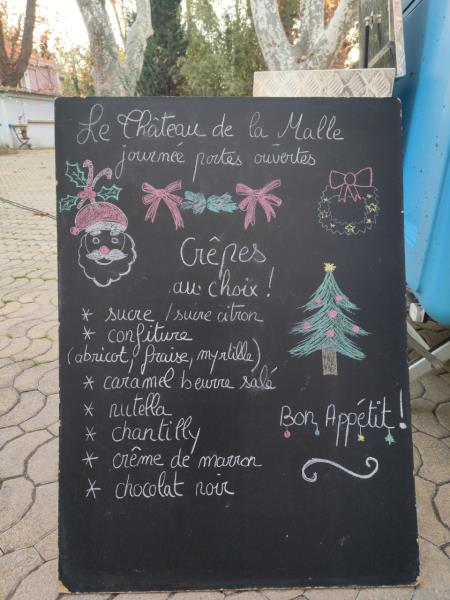 Le Château de la Malle
journée portes ouvertes
Crêpes
au choix !
* sucre / sucre citron
* confiture
(abricot, fraise, myrtille)
* caramel beurre salé
* nutella
* chantilly
* crème de marron
* chocolat noir
Bon Appétit !